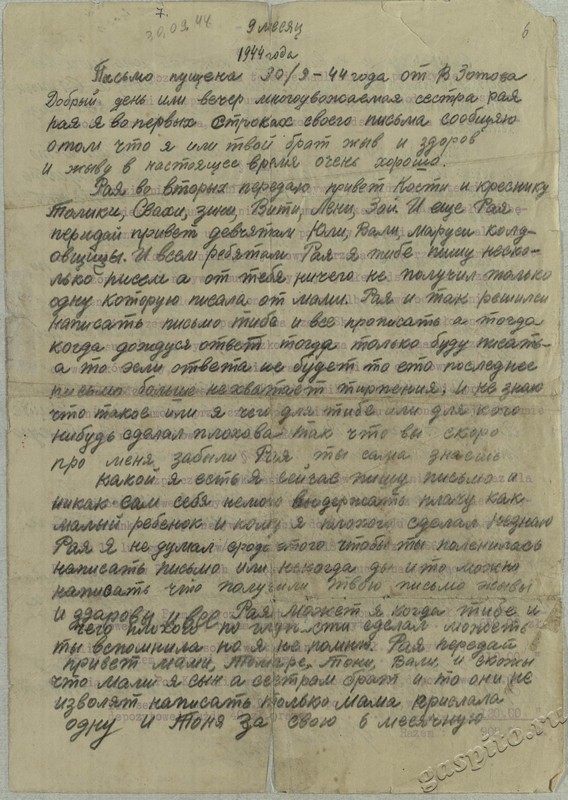 7.
30.09.44
9 месяц
6
1944 года
Письмо пущена 30/9-44 года от В Зотова
Добрый день или вечер многоуважаемая сестра рая
рая я во первых строках своего письма сообщяю
о том что я или твой брат жыв и здоров
и жыву в настоящее время очень хорошо.
Рая во вторых передаю привет Кости и креснику
Толики, Свахи, зини, Вити, Лени, Зои. И еще Рая
перидай привет девчятам Юли, Вали, Маруси колд-
овщицы. И всем ребятам Рая я тибе пишу неско-
лько писем а от тебя ничего не получил только
одну которую писала от мами. Рая и так решился
написать письмо тибе и все прописать а тогда
когда дождуся ответ тогда только буду писать
а то эсли ответа не будет то ето последнее
письмо больше нехватает тирпения. И не знаю
что такое или я чего для тибе или для кого
нибудь сделал плохова так что вы скоро
про меня забыли Рая ты сама знаешь
какой я есть я сейчас пишу письмо и
никак сам себя немогу выдержать плачу как
малый ребенок и кому я плохого сделал незнаю
Рая я не думал этого чтобы ты поленилась
написать письмо или некогда ды и то можно
написать что получили твою письмо жывы
и здаровы и все Рая может я когда тибе и
чего плохого по сделал можеть
ты вспомнила но я не помню. Рая передай
привет мами, Томаре, Тони, Вали и скажы
что мами я сын а сестрам брат и то они не
изволят написать только мама прислала
одну и Тоня за свою 6 месячную
Razem
gaspiio.ru